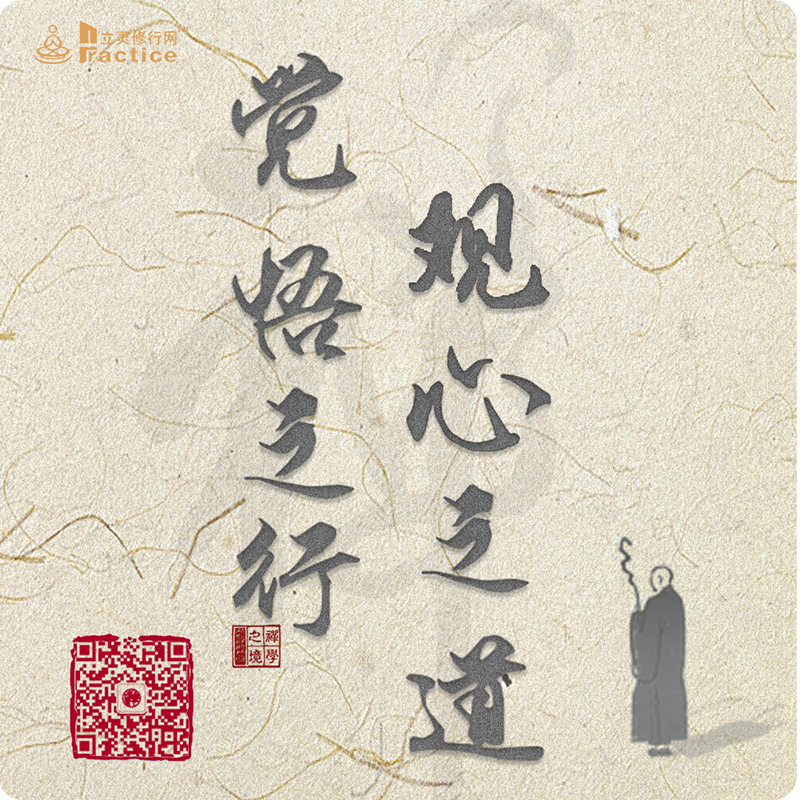 立灵修行网
Practice
观心之道
觉悟之行
禅學之境